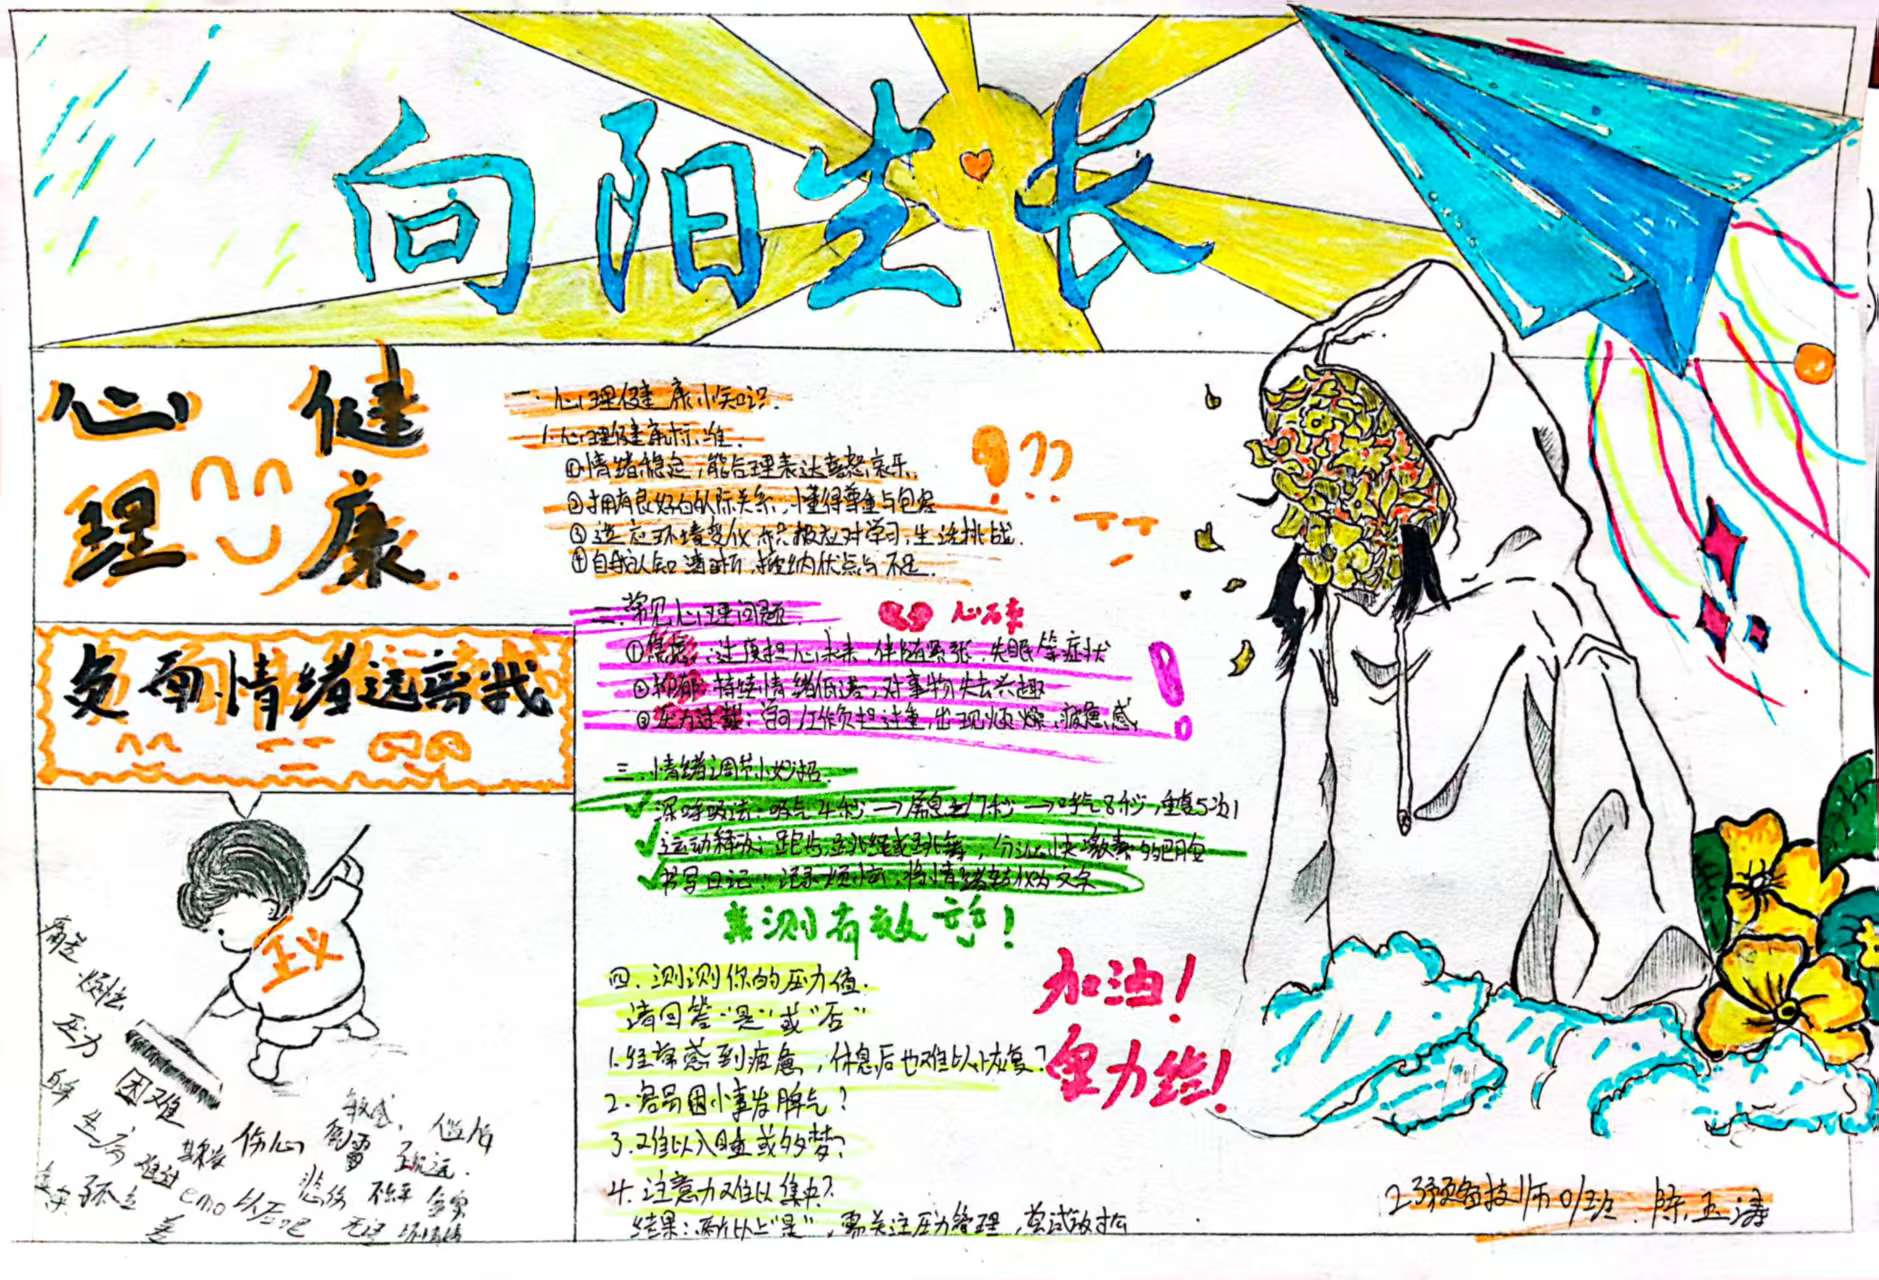 向阳生长
心理健康
一.心理健康小知识.
1.心理健康标准.
①情绪稳定,能合理表达喜怒哀乐.
②拥有良好的人际关系,懂得尊重与包容
③适应环境变化,积极应对学习,生活挑战.
④自我认知清晰,接纳优点与不足.
二.常见心理问题.
心碎
①焦虑:过度担心未来,伴随紧张,失眠等症状
②抑郁:持续情绪低落,对事物失去兴趣
③压力过载:学习/工作负担过重,出现烦燥,疲惫感,
三.情绪调节小妙招
深呼吸法:吸气4秒→屏息7秒→呼气8秒,重复5次
运动释放:跑步,跳绳或跳舞,分泌快乐激素
书写日记:记录烦恼,将情绪转化为文字
亲测有效哥!
四.测测你的压力值.
请回答"是"或"否"
1.经常感到疲惫,休息后也难以恢复?
2.容易因小事发脾气?
3.难以入睡或多梦?
4.注意力难以集中?
结果:两个以上"是",需关注压力管理,尝试放松
加油!
负面情绪远离我
烦恼
压力
困难
生病
难过
伤心
敏感
emo
以后吧
悲伤
不平
孤立
23预备技师01班.陈玉涛